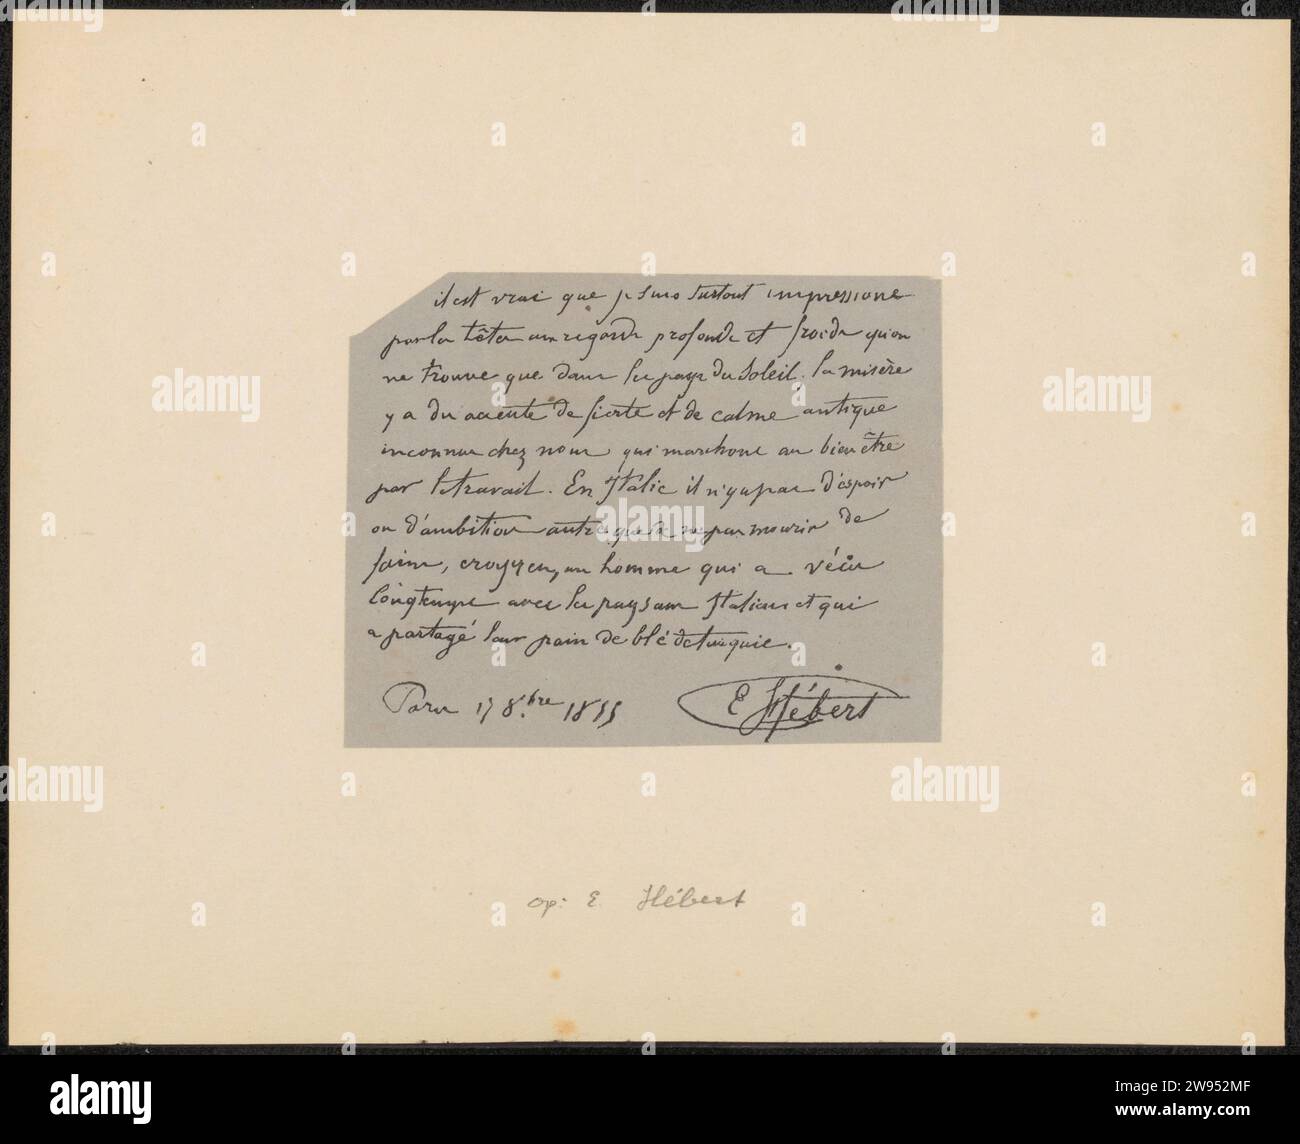 il est vrai que je suis surtout impressioné
par la têtes aux regards profonds et froids qu'on
ne trouve que dans les pays du Soleil, la misère
y a du accents de fierté et de calme antique
inconnu chez nous qui marchons au bien être
par le travail. En Italie il n'y a pas d'espoir
ou d'ambition autre que de ne pas mourir de
faim, croyez en, un homme qui a vécu
longtemps avec les paysans Italiens et qui
a partagé leur pain de blé de turquie.
Paris 17 8.bre 1855 E Hébert
op: E Hébert
alamy
2W952MF
www.alamy.com